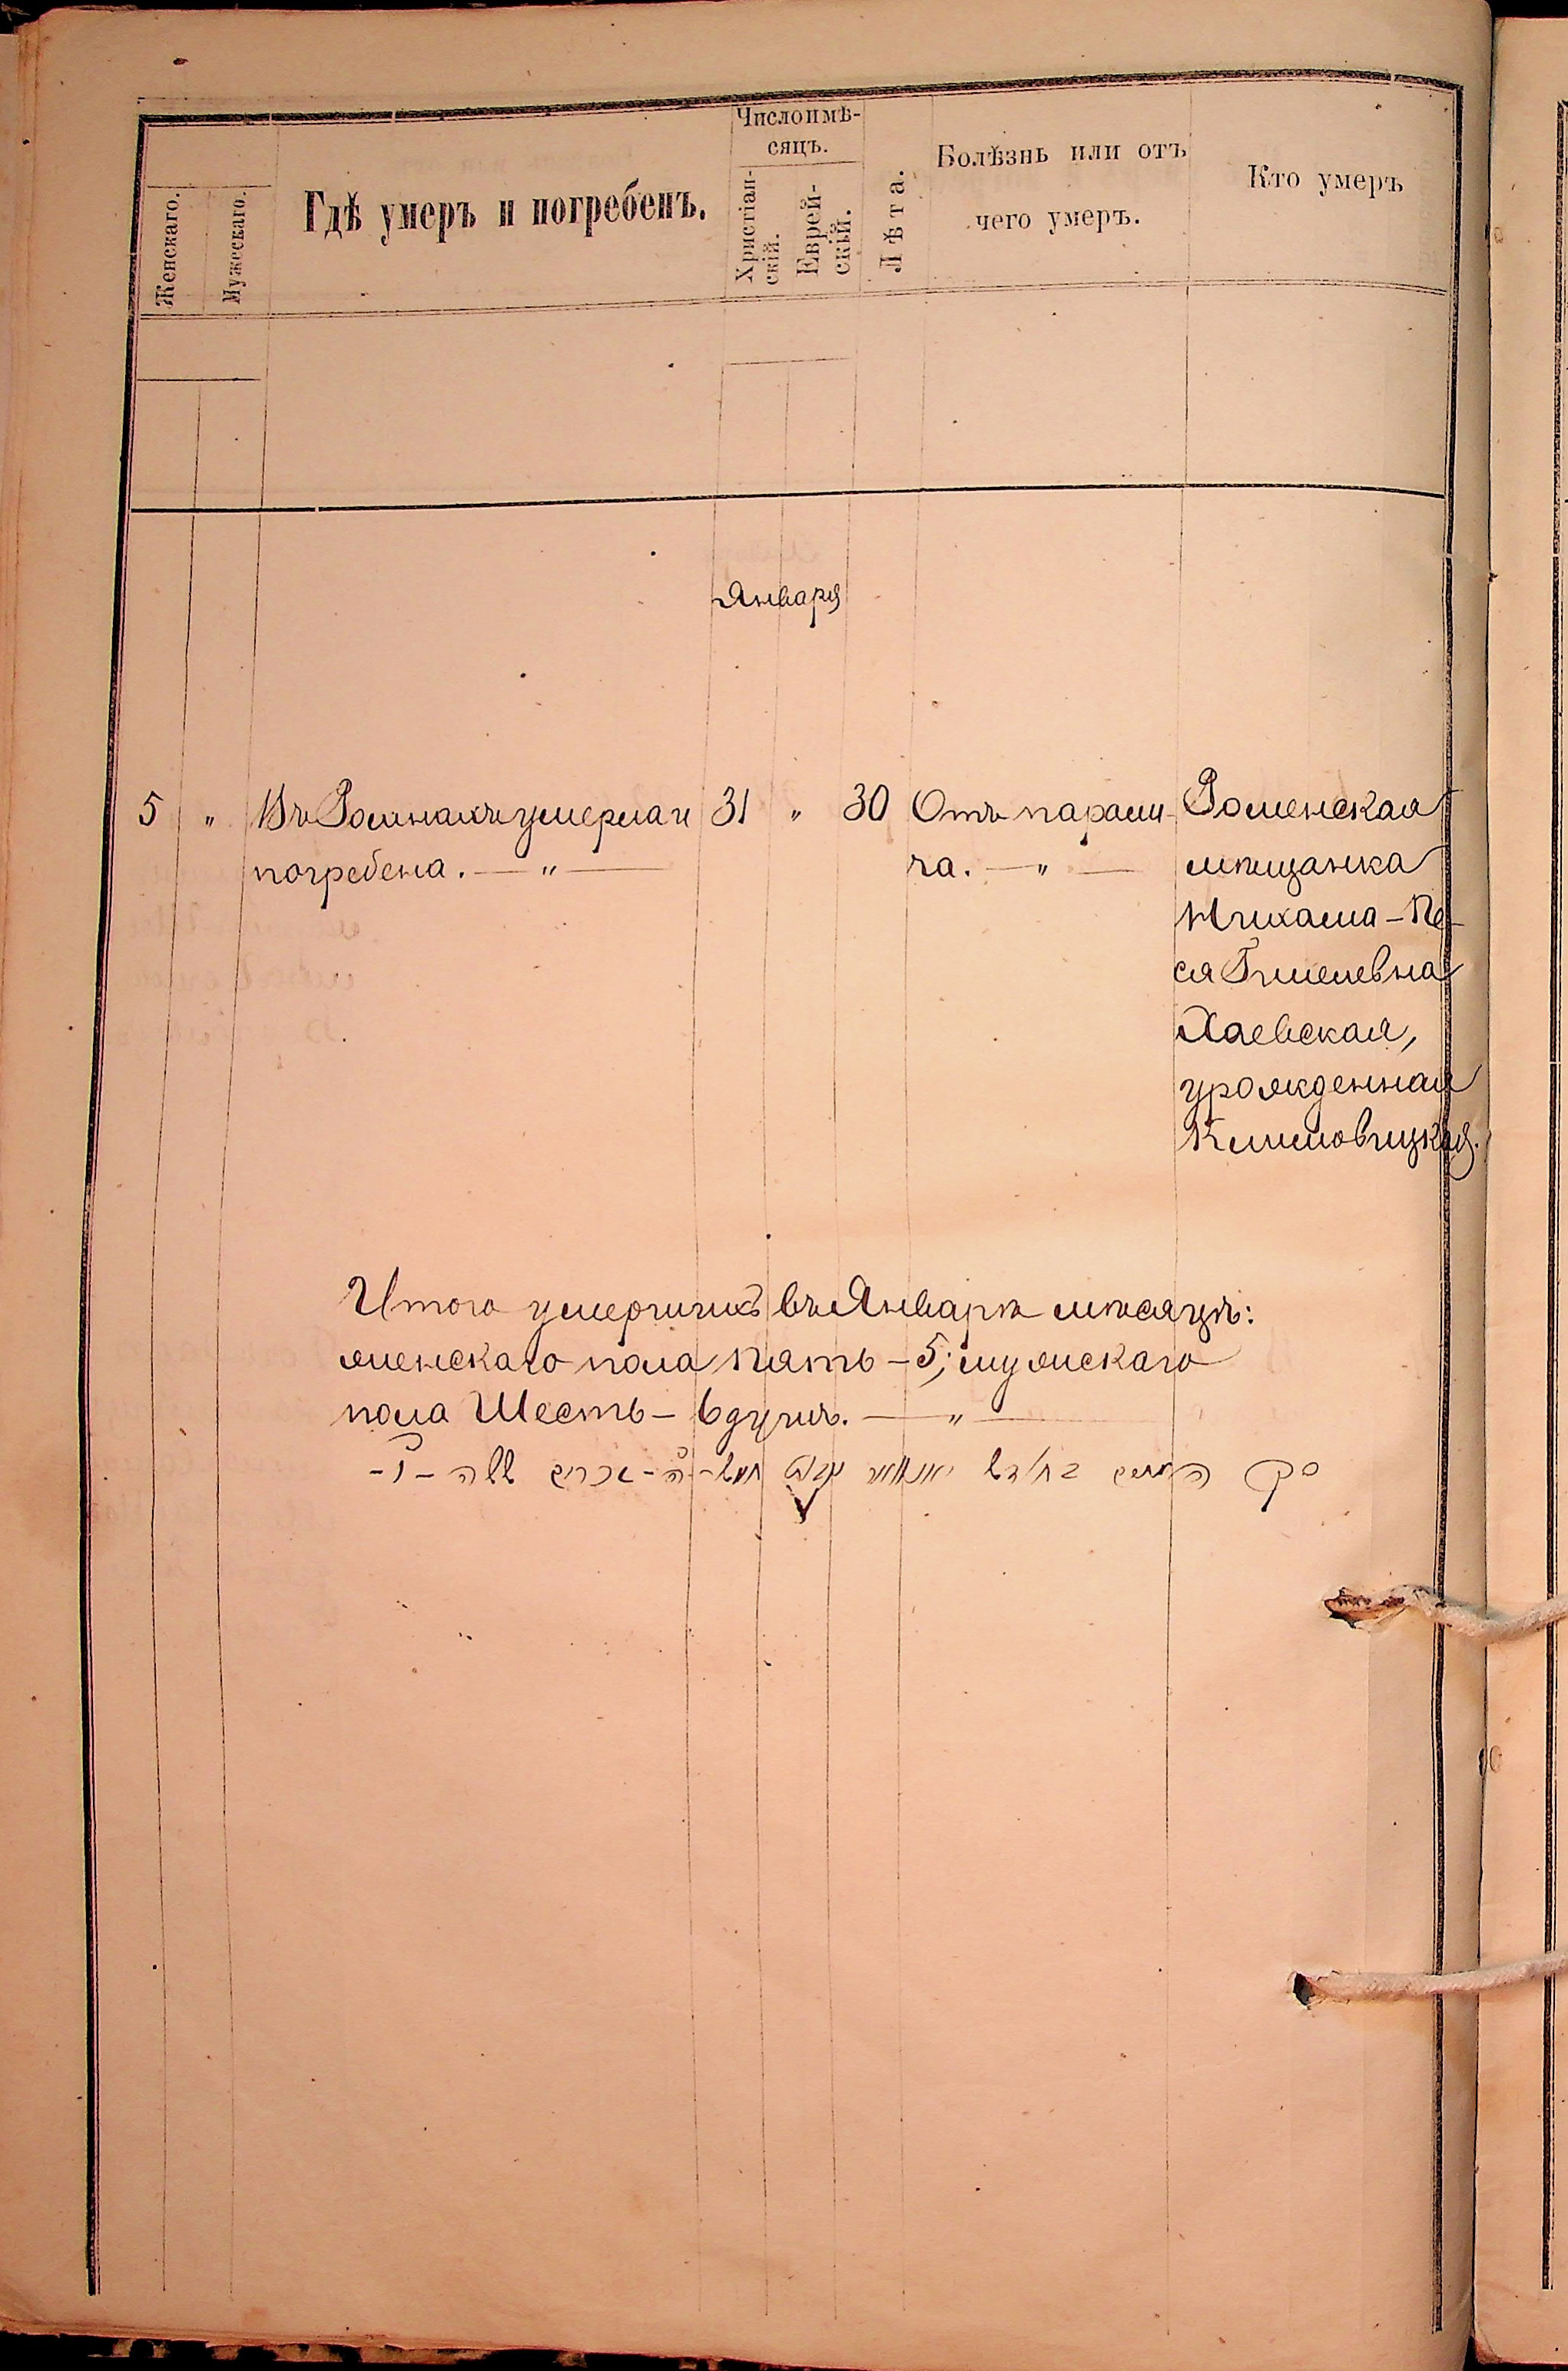 Женскаго.
Мужескаго.
Гдѣ умеръ и погребенъ.
Число и мѣ-
сяцъ.
Христіан-
скій.
Еврей-
скій.
Лѣта.
Болѣзнь или отъ
чего умеръ.
Кто умеръ
Января
5 " Въ Ромнахъ умерла и 31 " 30 Отъ парали- Роменская
погребена. — " — ча. — " — мѣщанка
Михама-Пе-
ся Гилелевна
Хаевская,
урожденная
Климовицкая.
Итого умершихъ въ Январѣ мѣсяцѣ:
женскаго пола Пять - 5; мужскаго
пола Шесть - 6 душъ. — " —